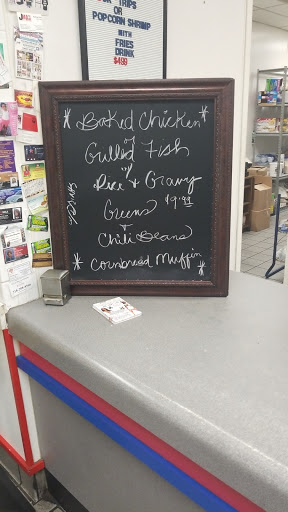 TRIPS
OR
POPCORN SHRIMP
WITH
FRIES
DRINK
$4.99
* Baked Chicken *
or
Grilled Fish
Rice & Gravy
Greens $9.99
&
Chili Beans
* Cornbread Muffin *